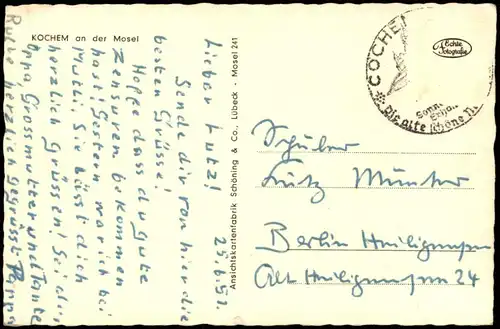 KOCHEM an der Mosel
Lieber Lutz!
Sende dir von hier die
besten Grüsse!
Hoffe dass du gute
Zensuren bekommen
hast! Gestern war ich bei
Mutti. Sie lässt dich
herzlich grüssen! Sei du
Oppa, Grossmutter und Tante
herzlich gegrüsst Pappa
25.6.52.
Ansichtskartenfabrik Schöning & Co., Lübeck · Mosel 241
COCHE
Sonn
Erho
Die alte schöne
Echte
Fotografie
Schüler
Lutz Münster
Berlin Heiligensee
Alt Heiligensee 24